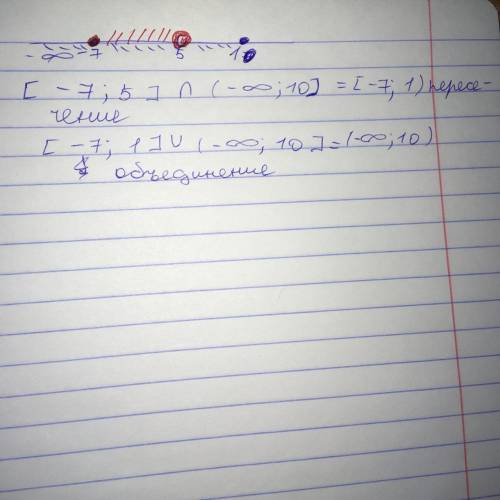 -∞ -7 5 10
[ -7; 5 ] ∩ (-∞; 10] = [-7; 1) пересе-
чение
[ -7; 1 ] ∪ (-∞; 10] = (-∞; 10)
объединение